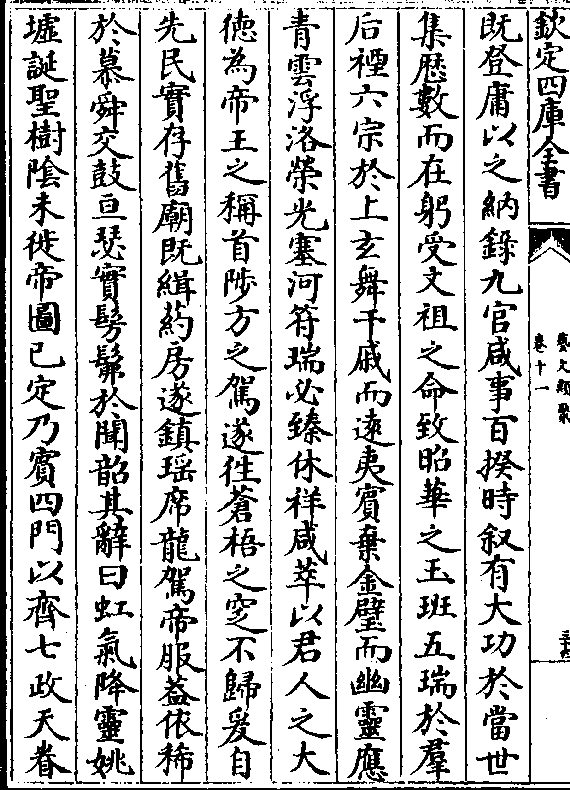 欽定四庫全書
藝文類聚
卷十一
既登庸以之納錄九官咸事百揆時叙有大功於當世
集歷數而在躬受文祖之命致昭華之玉班五瑞於羣
后禋六宗於上玄舞干戚而遠夷賓棄金璧而幽靈應
青雲浮洛榮光塞河符瑞必臻休祥咸萃以君人之大
德為帝王之稱首陟方之駕遂往蒼梧之窆不歸爰自
先民實存舊廟既緝葯房遂鎮瑶席龍駕帝服葢依稀
於慕舜交鼓亘瑟實髣髴於聞韶其辭曰虹氣降靈姚
墟誕聖樹陰未徙帝圖已定乃賓四門以齊七政天眷